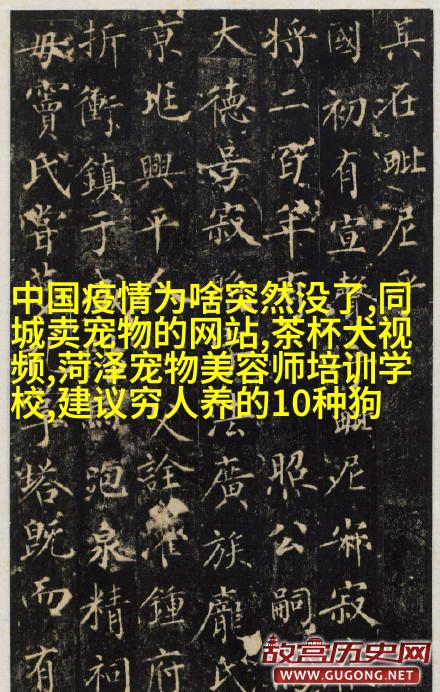 其在毗尼乎
國初有宣
尼 寂
將二百年
照公嗣
大德号寂
廣族龐氏
京兆興平人
詮 鍾府
折衝鎮于
泉精祠
毋竇氏嘗
塔既而有
中国疫情为啥突然没了,同
城卖宠物的网站,茶杯犬视
频,菏泽宠物美容师培训学
校,建议穷人养的10种狗
故宫历史网
WWW.GUGONG.NET